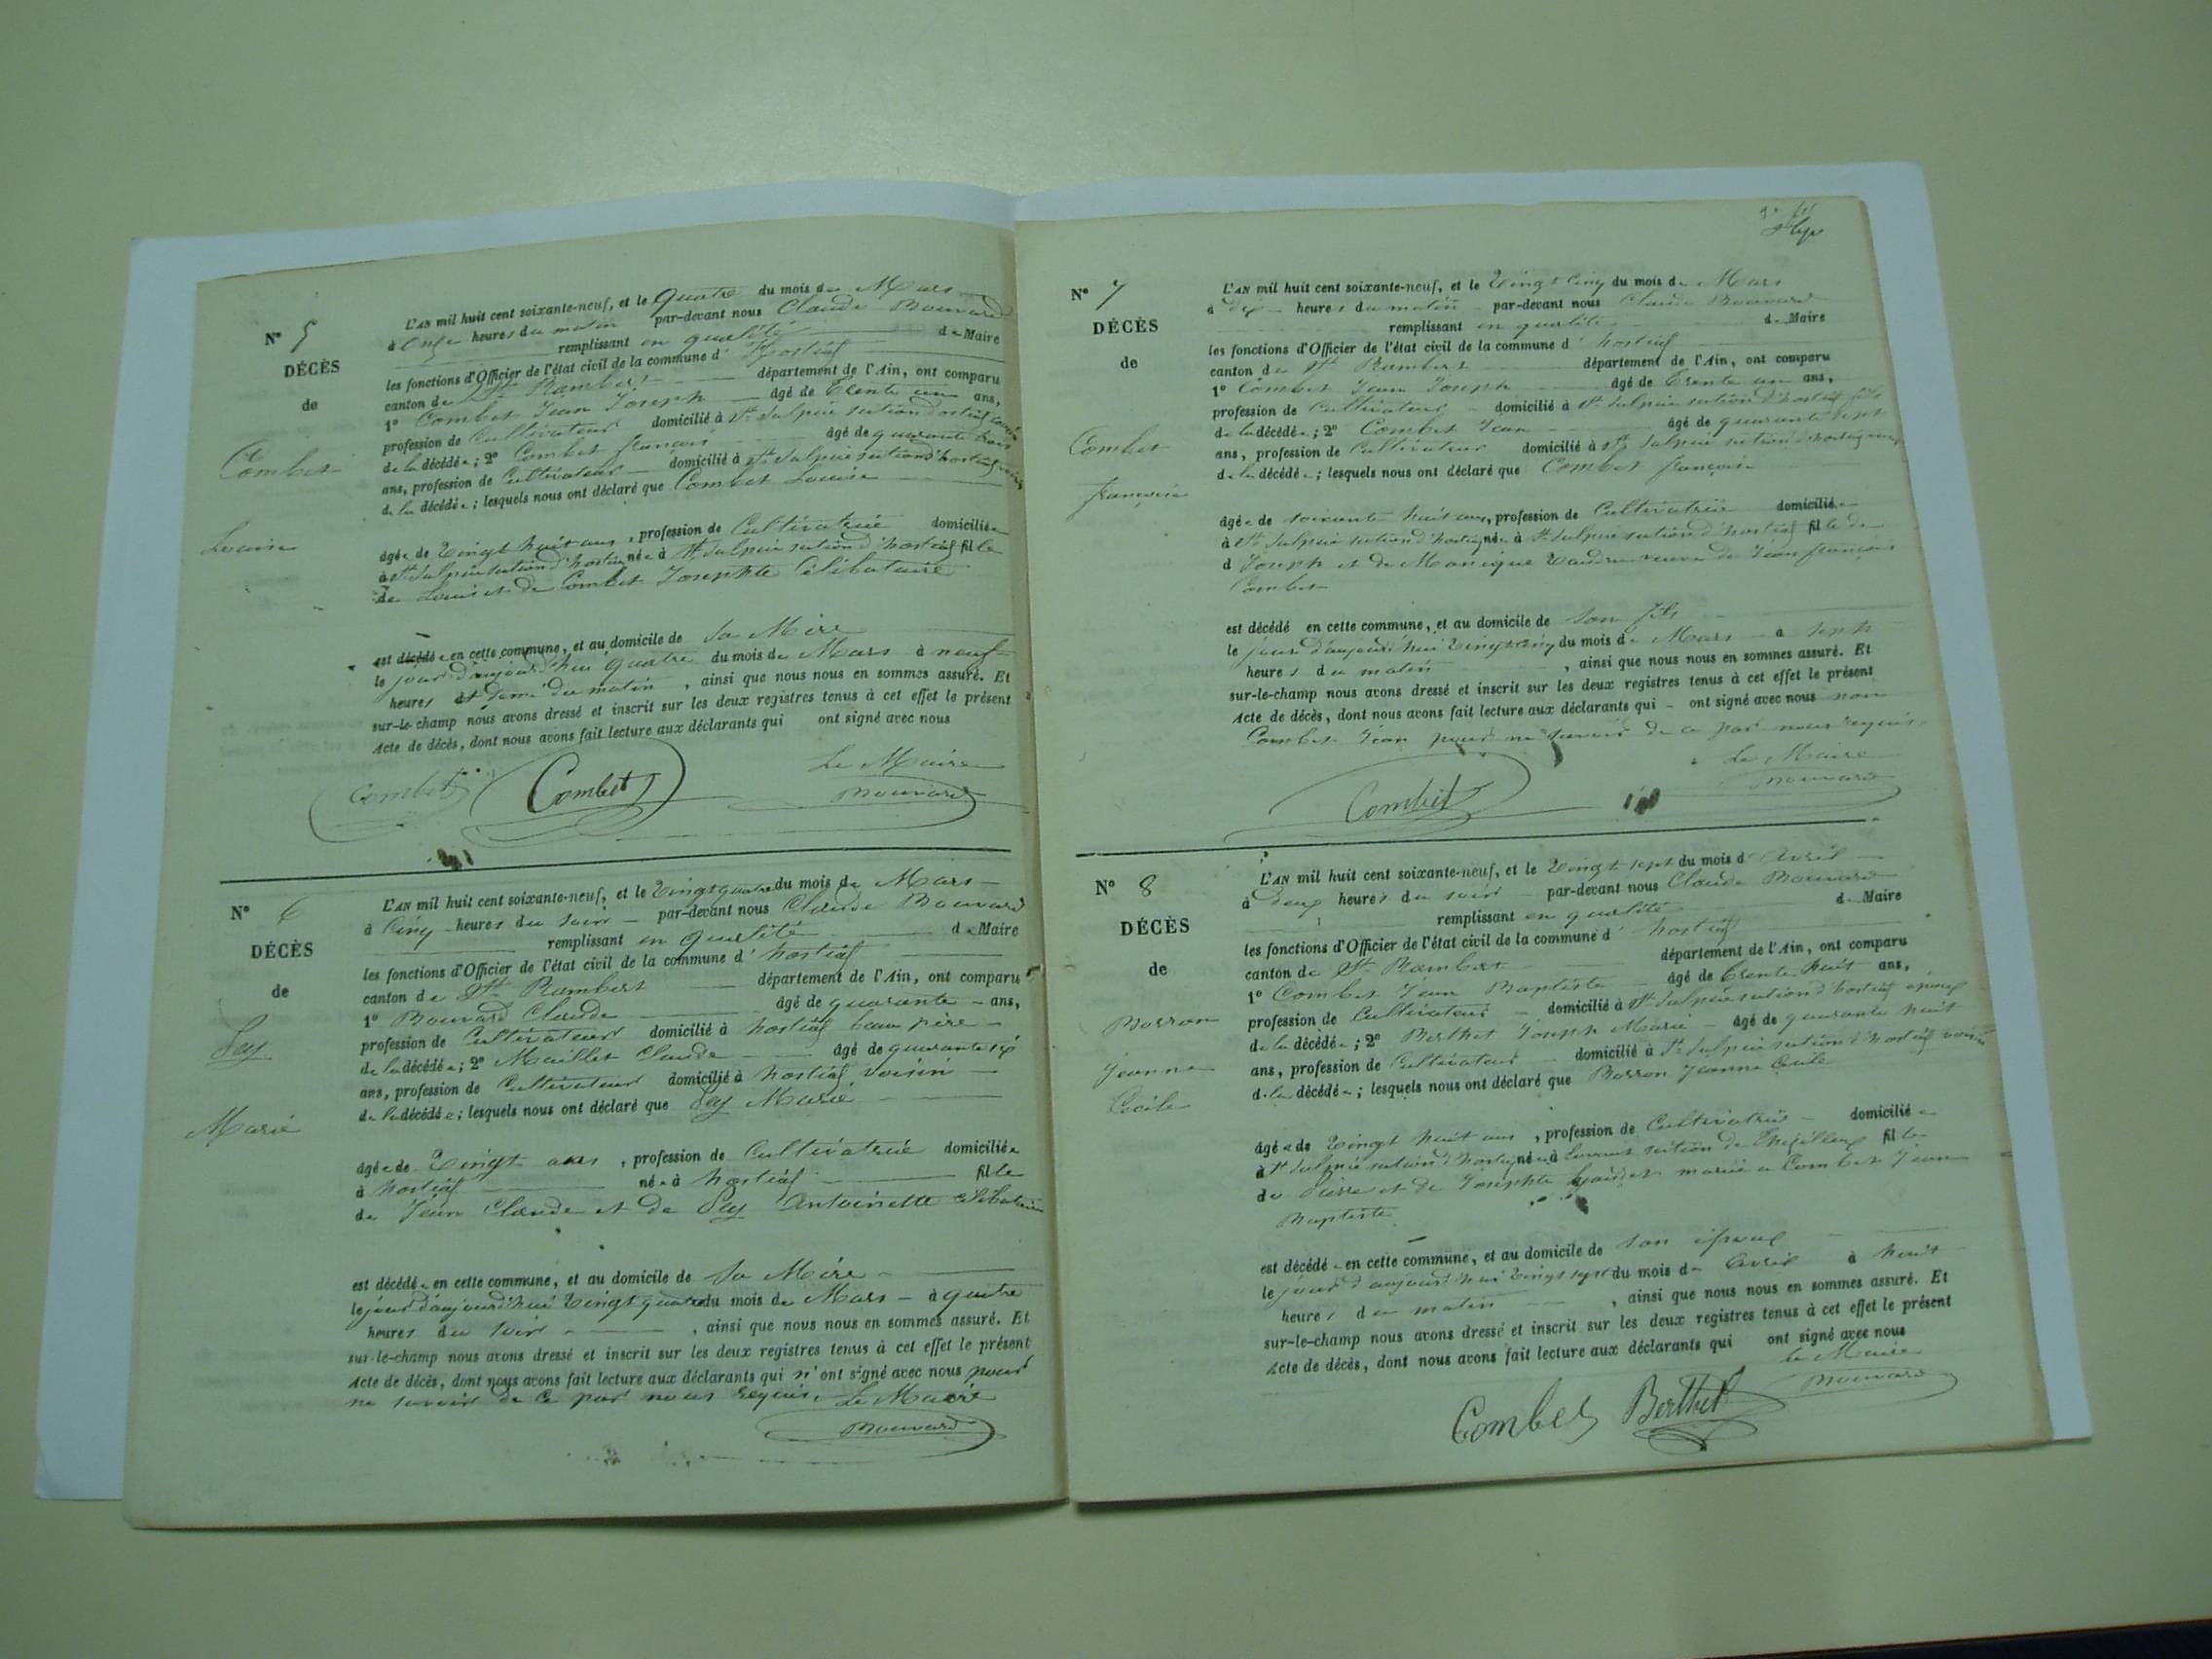 N° 5
DÉCÈS
de
Combet
Louise
L'AN mil huit cent soixante-neuf, et le Quatre du mois de Mars
à Onze heures du matin par-devant nous Claude Bouvard
remplissant en qualité de Maire
les fonctions d'Officier de l'état civil de la commune d' hostiaz
canton de St Rambert département de l'Ain, ont comparu
1° Combet Jean Joseph âgé de trente un ans,
profession de Cultivateur domicilié à St Sulpice section d'hostiaz cousin
de la décédée; 2° Combet françois âgé de quarante trois
ans, profession de Cultivateur domicilié à St Sulpice section d'hostiaz voisin
de la décédée; lesquels nous ont déclaré que Combet Louise
âgée de Vingt huit ans, profession de Cultivatrice domiciliée
à St Sulpice section d'hostiaz née à St Sulpice section d'hostiaz fille
de Louis et de Combet Josephte Célibataire
est décédée en cette commune, et au domicile de Sa Mère
le jour d'aujourd'hui quatre du mois de Mars à neuf
heures et demi du matin, ainsi que nous nous en sommes assuré. Et
sur-le-champ nous avons dressé et inscrit sur les deux registres tenus à cet effet le présent
Acte de décès, dont nous avons fait lecture aux déclarants qui ont signé avec nous
Le Maire
Combet Combet Bouvard
N° 6
DÉCÈS
de
Sey
Marie
L'AN mil huit cent soixante-neuf, et le Vingt quatre du mois de Mars
à Cinq heures du soir par-devant nous Claude Bouvard
remplissant en qualité de Maire
les fonctions d'Officier de l'état civil de la commune d' hostiaz
canton de St Rambert département de l'Ain, ont comparu
1° Bouvard Claude âgé de quarante ans,
profession de Cultivateur domicilié à hostiaz beau père
de la décédée; 2° Maillet Claude âgé de quarante six
ans, profession de Cultivateur domicilié à hostiaz voisin
de la décédée; lesquels nous ont déclaré que Sey Marie
âgée de Vingt ans, profession de Cultivatrice domiciliée
à hostiaz née à hostiaz fille
de Jean Claude et de Sey Antoinette célibataire
est décédée en cette commune, et au domicile de Sa Mère
le jour d'aujourd'hui Vingt quatre du mois de Mars à quatre
heures du soir, ainsi que nous nous en sommes assuré. Et
sur-le-champ nous avons dressé et inscrit sur les deux registres tenus à cet effet le présent
Acte de décès, dont nous avons fait lecture aux déclarants qui n'ont signé avec nous pour
ne savoir de ce par nous requis. Le Maire
Bouvard
N° 7
DÉCÈS
de
Combet
françoise
L'AN mil huit cent soixante-neuf, et le Vingt Cinq du mois de Mars
à dix heures du matin par-devant nous Claude Bouvard
remplissant en qualité de Maire
les fonctions d'Officier de l'état civil de la commune d' hostiaz
canton de St Rambert département de l'Ain, ont comparu
1° Combet Jean Joseph âgé de trente un ans,
profession de Cultivateur domicilié à St Sulpice section d'hostiaz fils
de la décédée; 2° Combet Jean âgé de quarante sept
ans, profession de Cultivateur domicilié à St Sulpice section d'hostiaz
de la décédée; lesquels nous ont déclaré que Combet françoise
âgée de soixante huit ans, profession de Cultivatrice domiciliée
à St Sulpice section d'hostiaz née à St Sulpice section d'hostiaz fille de
d Joseph et de Monique veuve de Jean françois
Combet
est décédé en cette commune, et au domicile de son fils
le jour d'aujourd'hui Vingt cinq du mois de Mars à sept
heures du matin, ainsi que nous nous en sommes assuré. Et
sur-le-champ nous avons dressé et inscrit sur les deux registres tenus à cet effet le présent
Acte de décès, dont nous avons fait lecture aux déclarants qui ont signé avec nous non
Combet Jean pour ne savoir de ce par nous requis.
Le Maire
Combet Bouvard
N° 8
DÉCÈS
de
Borron
Jeanne
Cécile
L'AN mil huit cent soixante-neuf, et le Vingt sept du mois d'Avril
à Deux heures du soir par-devant nous Claude Bouvard
remplissant en qualité de Maire
les fonctions d'Officier de l'état civil de la commune d' hostiaz
canton de St Rambert département de l'Ain, ont comparu
1° Combet Jean Baptiste âgé de trente huit ans,
profession de Cultivateur domicilié à St Sulpice section d'hostiaz époux
de la décédée; 2° Berthet Joseph Marie âgé de quarante huit
ans, profession de Cultivateur domicilié à St Sulpice section d'hostiaz voisin
de la décédée; lesquels nous ont déclaré que Borron Jeanne Cécile
âgée de Vingt huit ans, profession de Cultivatrice domiciliée
à St Sulpice section d'hostiaz née à section de Thézillieu fille
de Pierre et de Josephte mariée a Combet Jean
Baptiste
est décédée en cette commune, et au domicile de son époux
le jour d'aujourd'hui vingt sept du mois de Avril à huit
heures du matin, ainsi que nous nous en sommes assuré. Et
sur-le-champ nous avons dressé et inscrit sur les deux registres tenus à cet effet le présent
Acte de décès, dont nous avons fait lecture aux déclarants qui ont signé avec nous
Le Maire
Combet Berthet Bouvard